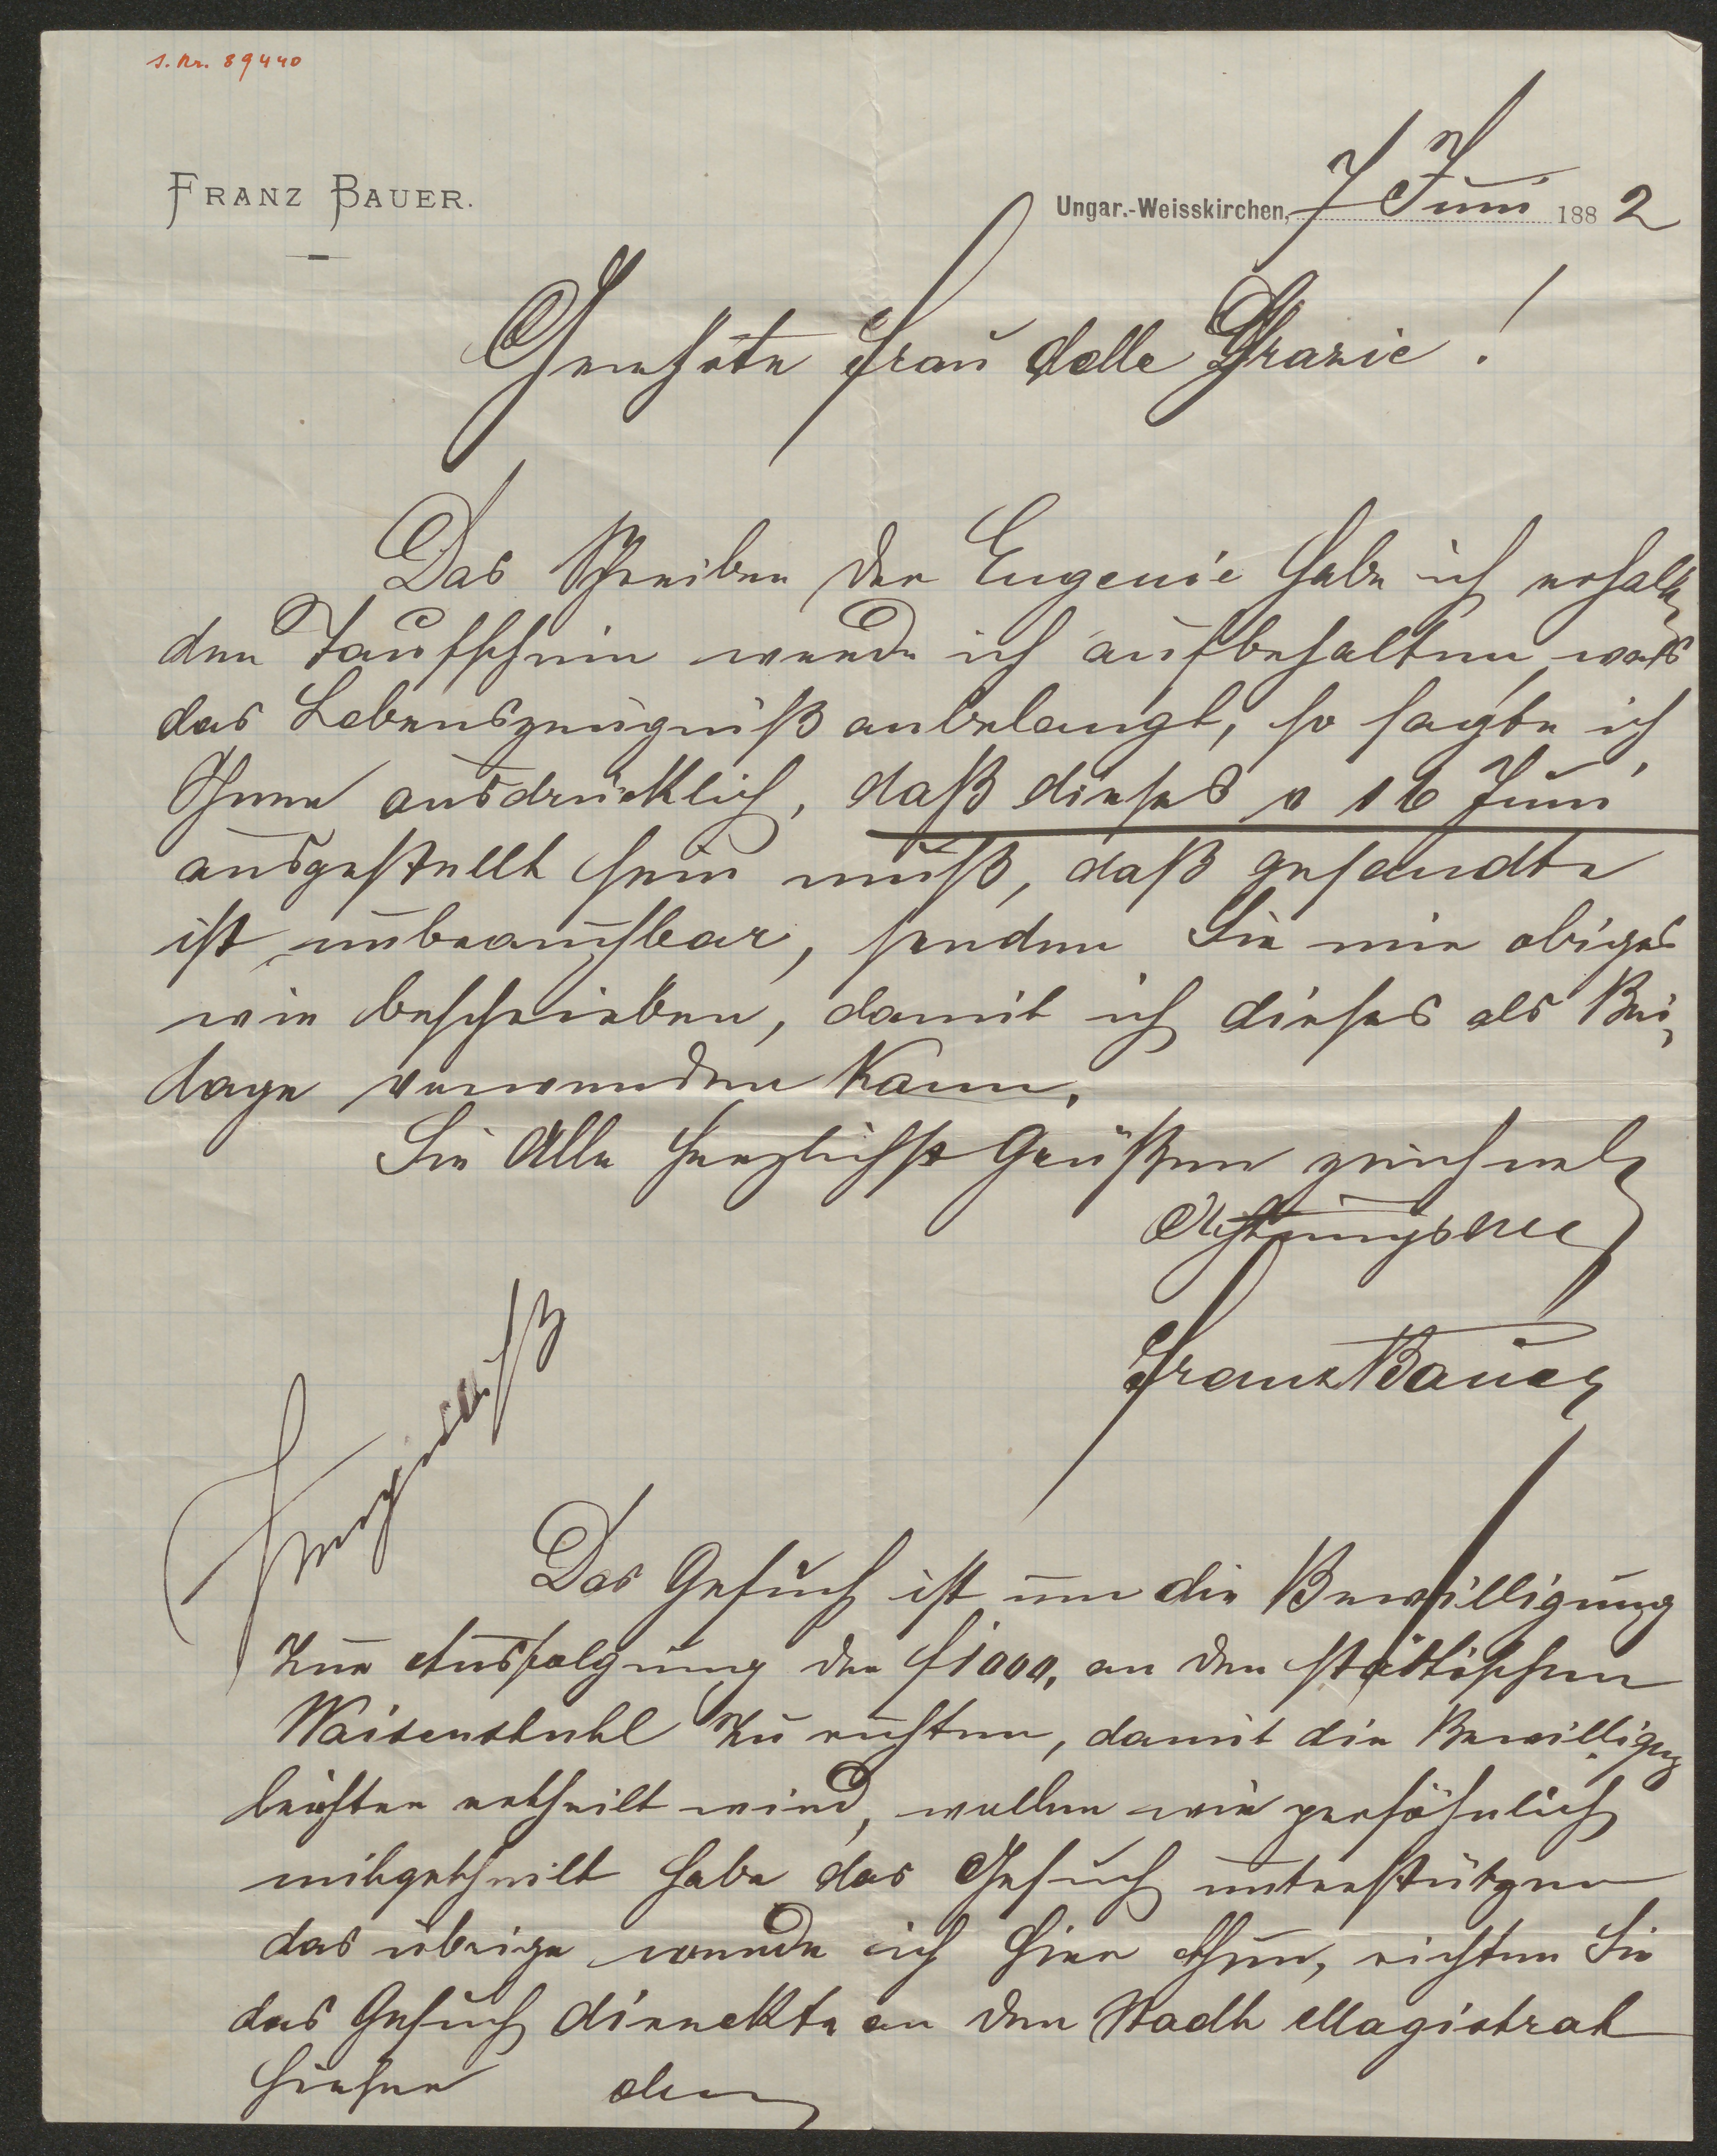 s. Nr. 89440
FRANZ BAUER.
Ungar.-Weisskirchen, 7 Juni 1882
Geehrte Frau delle Grazie!
Das Schreiben der Eugenie habe ich erhalten
den Taufschein werde ich aufbehalten, was
das Lebenszeugniß anbelangt, so sagte ich
Ihnen ausdrücklich, daß dieses v 16 Juni
ausgestellt sein muß, daß gesandte
ist unbrauchbar, senden Sie mir obiges
wie beschrieben, damit ich dieses als Bei-
lage verwenden kann.
Sie Alle herzlichst Grüßen zeichnet
Achtungsvoll
Franz Bauer
Das Gesuch ist um die Bewilligung
zur Ausfolgung der f 1000, an den städtischen
Waisenstuhl zu richten, damit die Bewilligung
leichter ertheilt wird, wollen wie persöhnlich
mitgetheilt habe das Gesuch unterstützen
das übrige werde ich hier thun, richten Sie
das Gesuch direckte an den Stadt Magistrat
hieher